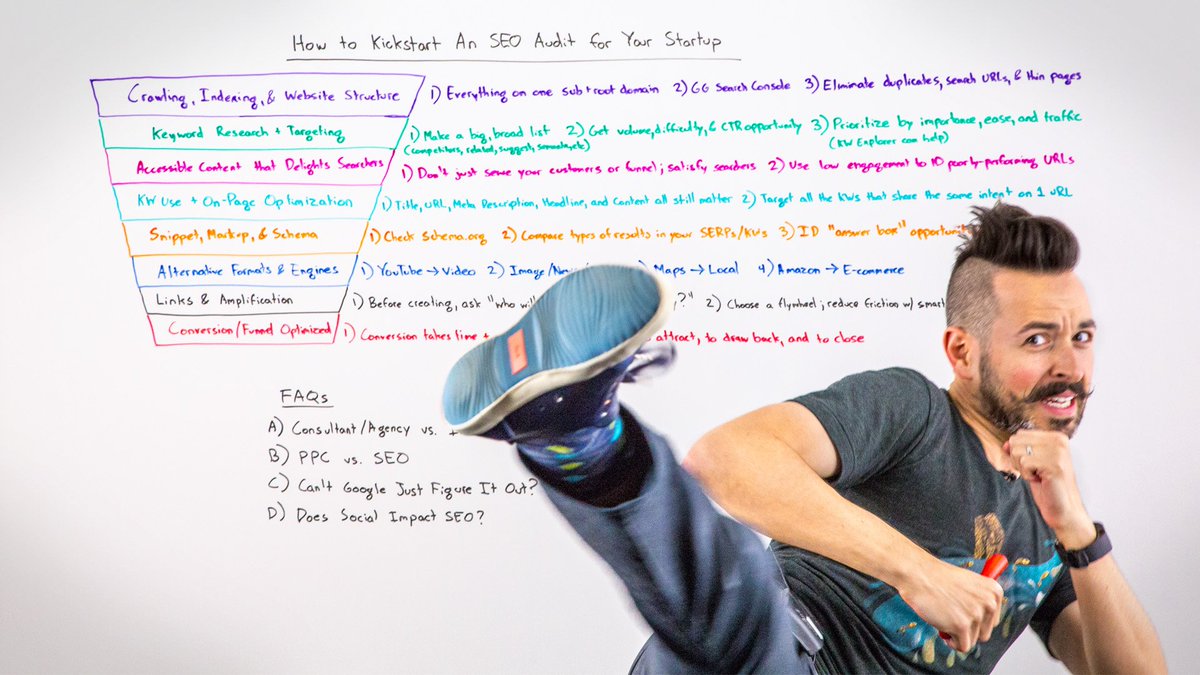 How to Kickstart An SEO Audit for Your Startup
Crawling, Indexing, & Website Structure 1) Everything on one sub + root domain 2) GG Search Console 3) Eliminate duplicates, search URLs, & thin pages
Keyword Research + Targeting 1) Make a big, broad list 2) Get volume, difficulty, & CTR opportunity 3) Prioritize by importance, ease, and traffic
(competitors, related, suggest, semantic, etc) (KW Explorer can help)
Accessible Content that Delights Searchers 1) Don't just serve your customers or funnel; satisfy searchers 2) Use low engagement to ID poorly-performing URLs
KW Use + On-Page Optimization 1) Title, URL, Meta Description, Headline, and Content all still matter 2) Target all the KWs that share the same intent on 1 URL
Snippet, Markup, & Schema 1) Check Schema.org 2) Compare types of results in your SERPs/KWs 3) ID "answer box"
Alternative Formats & Engines 1) YouTube → Video 2) Image/ Maps → Local 4) Amazon → E-commerce
Links & Amplification 1) Before creating, ask "who ?" 2) Choose a flywheel; reduce friction w/
Conversion/Funnel Optimized 1) Conversion takes time + attract, to draw back, and to close
FAQs
A) Consultant/Agency vs.
B) PPC vs. SEO
C) Can't Google Just Figure It Out?
D) Does Social Impact SEO?